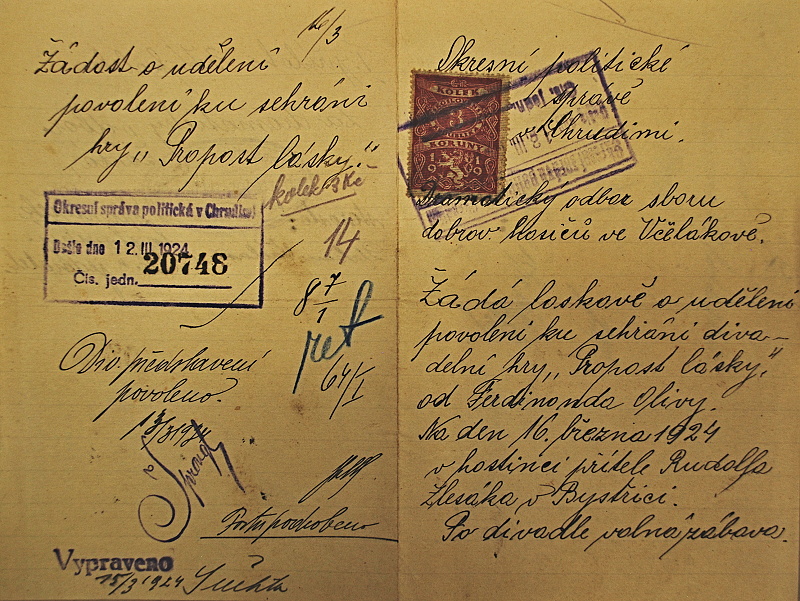 16/3
Žádost o udělení
povolení ku sehrání
hry „Propost lásky."
kolek 3 Kč
Okresní správa politická v Chrudimi
Došlo dne 12. III. 1924
Čís. jedn. 20748
14
8 7/1
ret
64/I
Div. představení
povoleno.
13/3 1924
Vypraveno
15/3 1924
Okresní politické
správě
v Chrudimi.
KOLEK
3
KORUNY
1919
Dramatický odbor sboru
dobrov. hasičů ve Včelákově.
Žádá laskavě o udělení
povolení ku sehrání diva-
delní hry „Propost lásky."
od Ferdinanda Olivy.
Na den 16. března 1924
v hostinci přítele Rudolfa
Zlesáka v Bystřici.
Po divadle volná zábava.